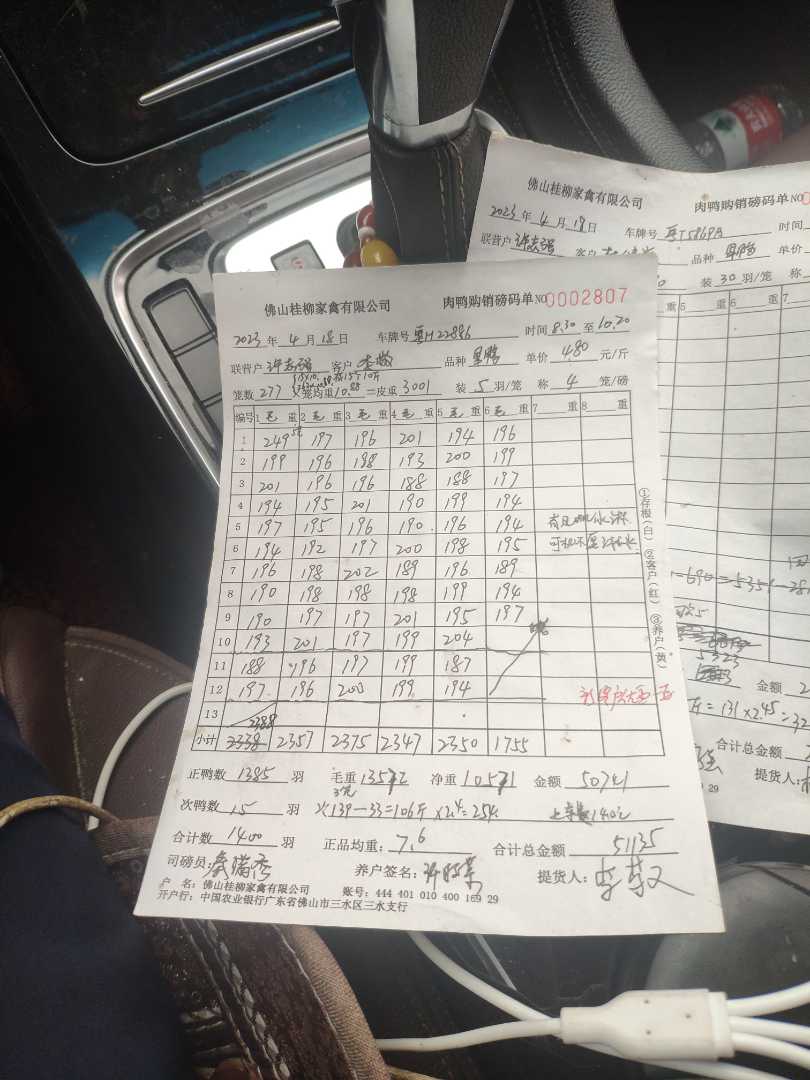 佛山桂柳家禽有限公司 肉鸭购销磅码单 NO 0002807
2023年4月18日 车牌号 粤H22886 时间 8.30 至 10.20
联营户 许志强 客户 品种 单价 480 元/斤
笼数 277 × 笼均重 10.88 = 皮重 3001 装 5 羽/笼 称 4 笼/磅
编号 1毛重 2毛重 3毛重 4毛重 5毛重 6毛重 7重 8重
1 249 197 196 201 194 196
2 199 196 198 193 200 199
3 201 196 196 188 188 197
4 194 195 201 190 199 194
5 197 195 196 190 196 194
6 194 192 197 200 198 195
7 196 198 202 189 196 189
8 190 198 198 198 199 194
9 190 197 197 201 195 197
10 193 201 197 199 204
11 188 196 197 199 187
12 197 196 200 199 194
13 2388
小计 2338 2357 2375 2347 2350 1755
正鸭数 1385 羽 毛重 13572 净重 10571 金额 50741
次鸭数 15 羽 139-33=106斤 ×2.4=254 140
合计数 1400 羽 正品均重: 7.6 合计总金额 51135
司磅员: 养户签名: 提货人:
户 名: 佛山桂柳家禽有限公司 账号: 444 401 010 400 169 29
开户行: 中国农业银行广东省佛山市三水区三水支行
①存根(白) ②客户(红) ③养户(黄)
佛山桂柳家禽有限公司 肉鸭购销磅码单 NO
2023年4月18日 车牌号 粤T5869A 时间
联营户 许志强 客户 品种 单价
装 30 羽/笼
重 5 重 6 重 7
-690=5354-28
金额
=131×2.45=32
合计总金额
提货人:
29